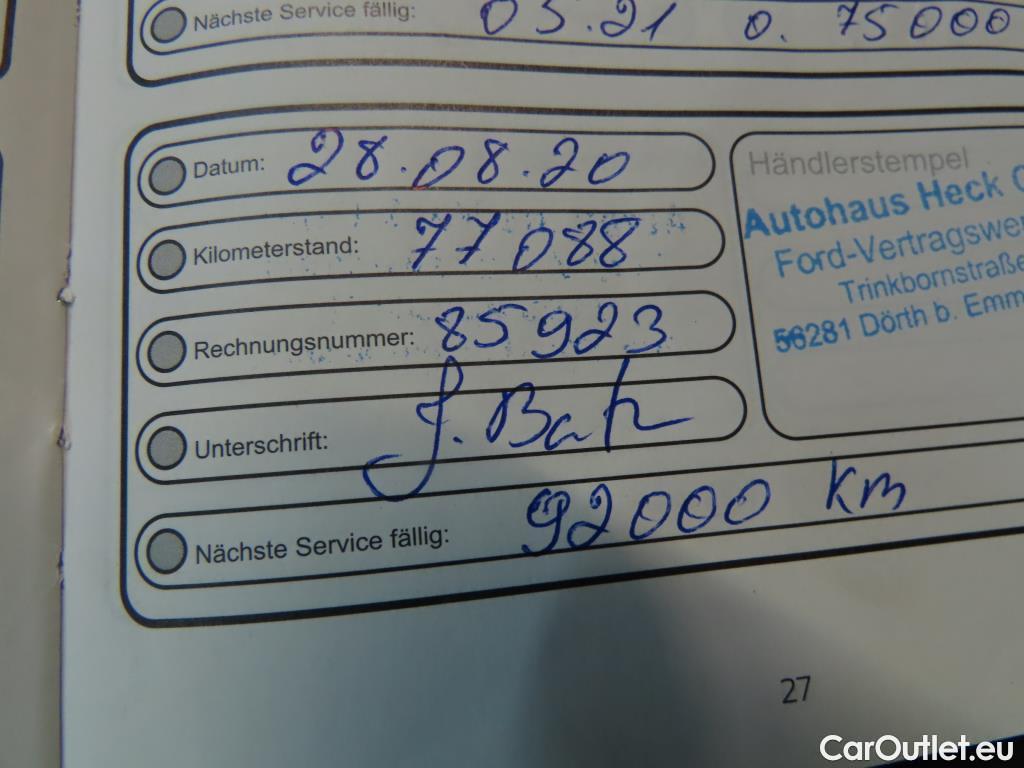 Nächste Service fällig: 03.21 o. 75000
Datum: 28.08.20
Kilometerstand: 77088
Rechnungsnummer: 85923
Unterschrift:
Nächste Service fällig: 92000 km
Händlerstempel
Autohaus Heck
Ford-Vertragswer
Trinkbornstraße
56281 Dörth b. Emm
27
CarOutlet.eu